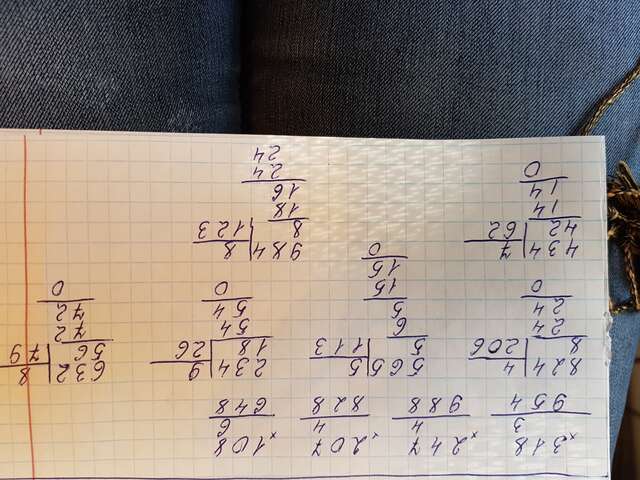 ×318 ×247 ×207 ×108
3 4 4 6
954 988 828 648
824|4 565|5 234|9 632|8
8 206 5 113 18 26 56 79
24 6 54 72
24 5 54 72
0 15 0 0
15
0
434|7 984|8
42 62 8 123
14 18
14 16
0 24
24